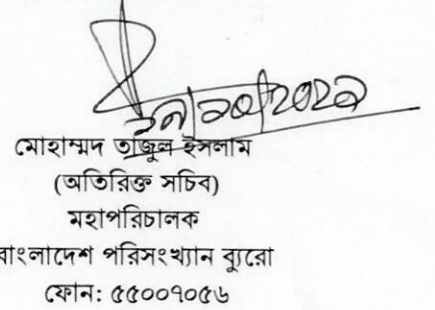 মোহাম্মদ তাজুল ইসলাম
(অতিরিক্ত সচিব)
মহাপরিচালক
বাংলাদেশ পরিসংখ্যান ব্যুরো
ফোন: ৫৫০০৭০৫৬